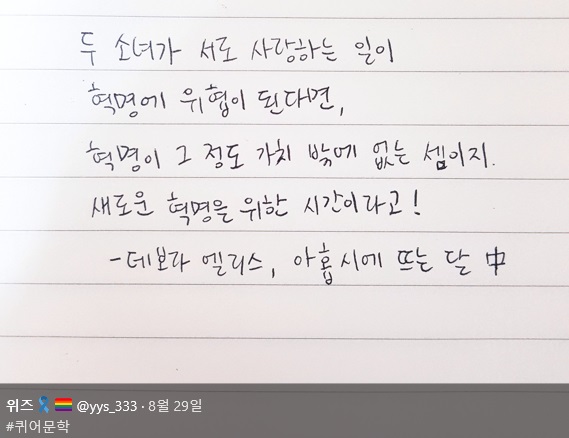 두 소녀가 서로 사랑하는 일이
혁명에 위협이 된다면,
혁명이 그 정도 가치 밖에 없는 셈이지.
새로운 혁명을 위한 시간이라고!
-데보라 엘리스, 아홉시에 뜨는 달 中
위즈🎗️🏳️‍🌈 @yys_333 · 8월 29일
#퀴어문학